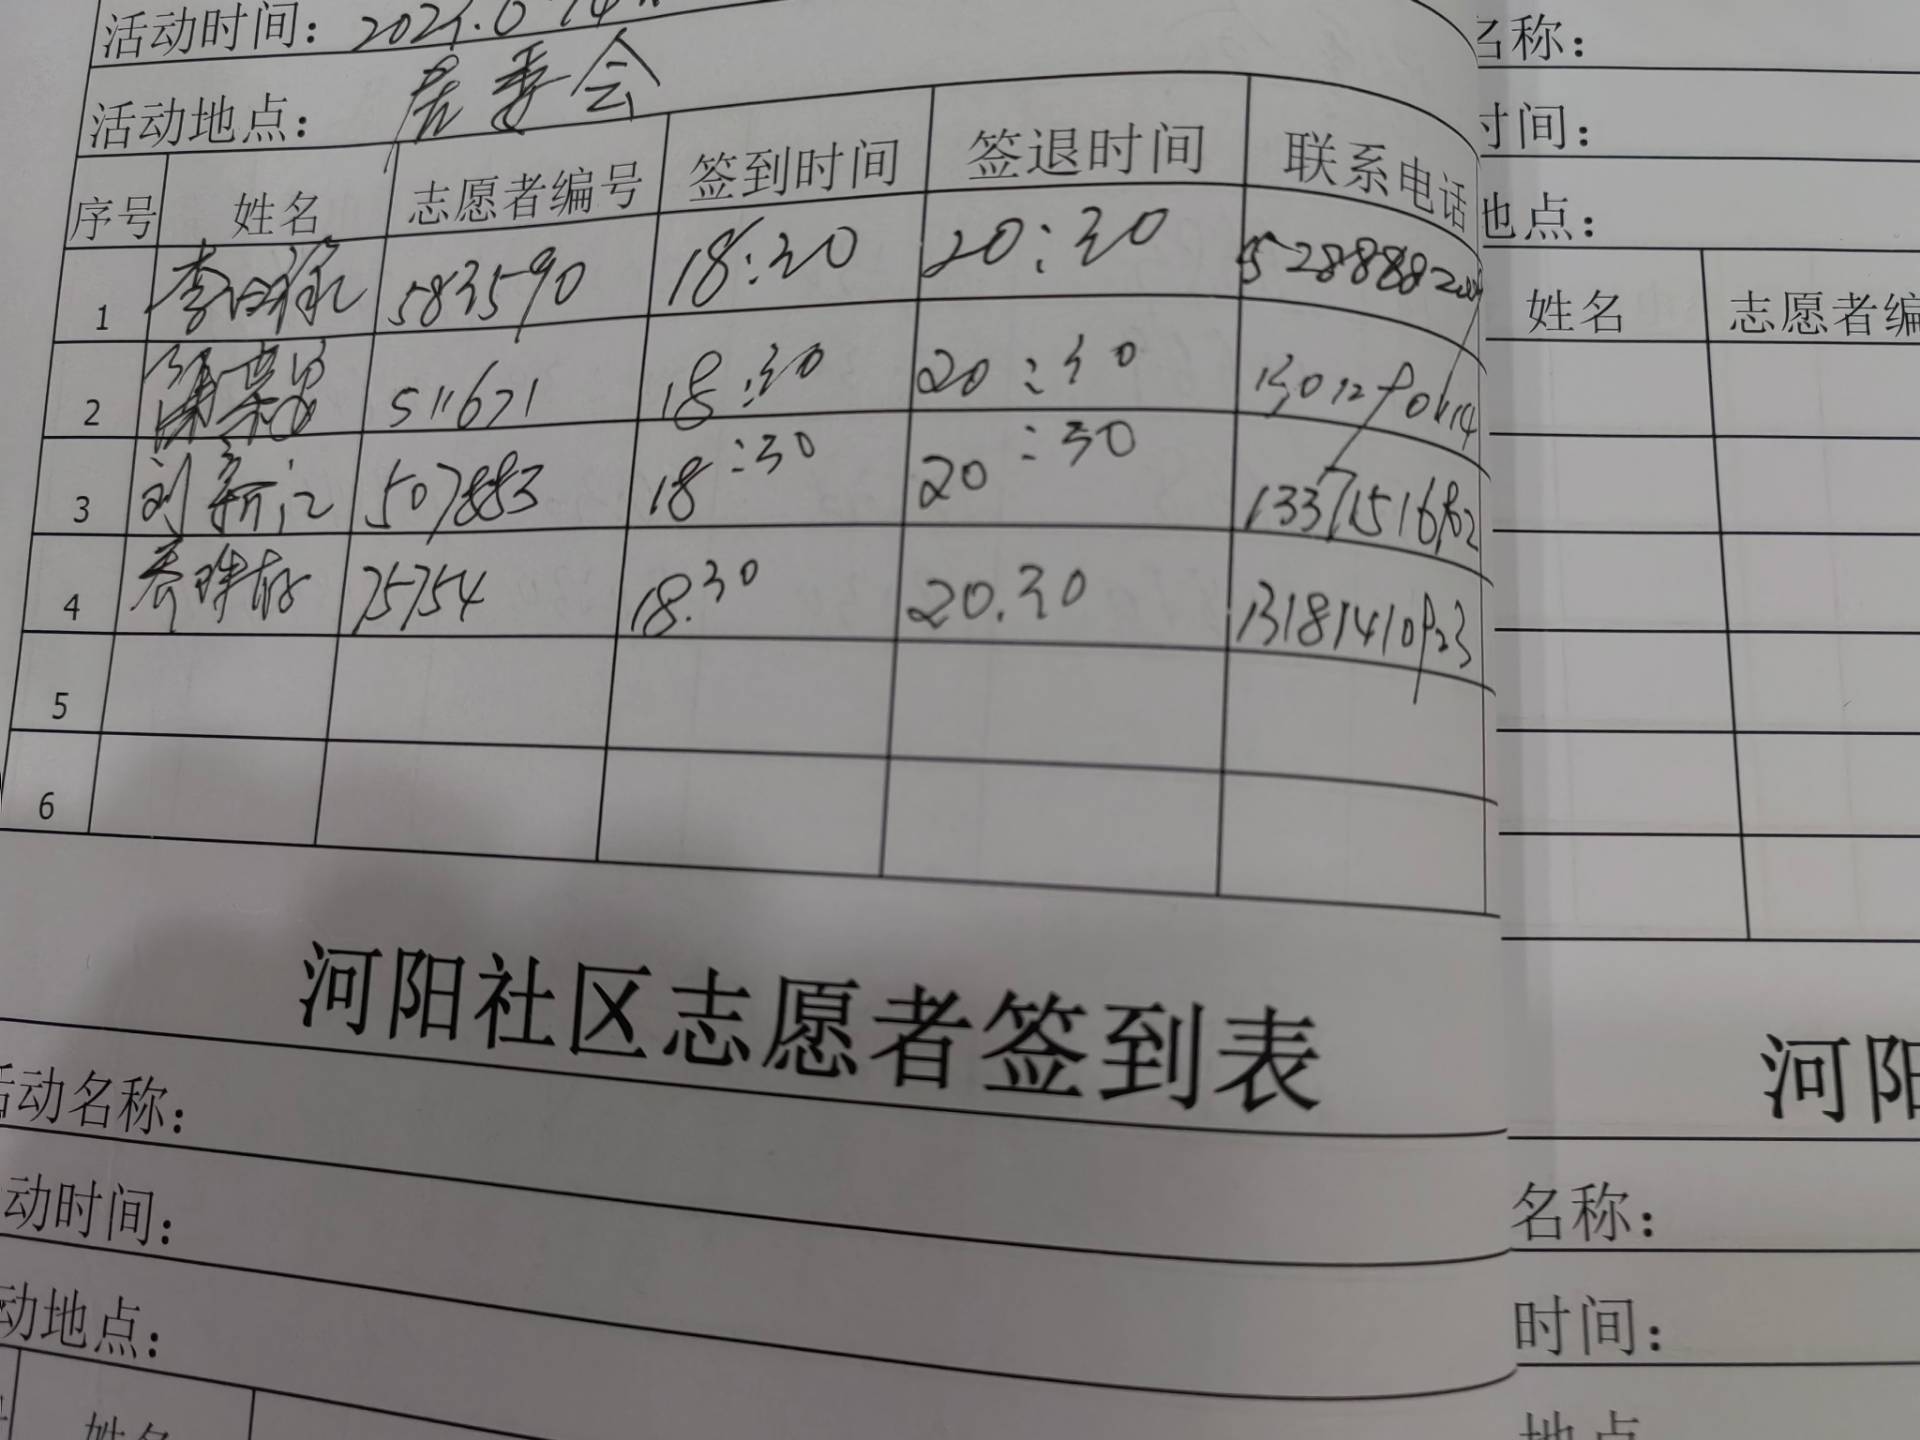 活动时间：
活动地点： 居委会
序号 姓名 志愿者编号 签到时间 签退时间 联系电话
1 583590 18:30 20:30
2 511671 18:30 20:30
3 刘新江 507883 18:30 20:30
4 75754 18.30 20.30
5
6
河阳社区志愿者签到表
活动名称：
动时间：
动地点：
姓名
名称：
时间：
地点：
姓名 志愿者编
河阳
名称：
时间：
地点